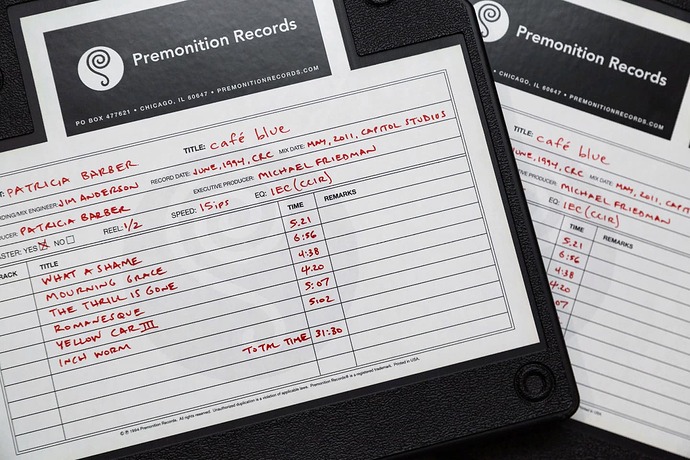 Premonition Records
PO BOX 477621 • CHICAGO, IL 60647 • PREMONITIONRECORDS.COM
TITLE: café blue
PATRICIA BARBER
RECORD DATE: JUNE, 1994, CRC MIX DATE: MAY, 2011, CAPITOL STUDIOS
DING/MIX ENGINEER: JIM ANDERSON
EXECUTIVE PRODUCER: MICHAEL FRIEDMAN
UCER: PATRICIA BARBER
REEL: 1/2 SPEED: 15ips EQ: IEC (CCIR)
ASTER: YES ☒ NO ☐
RACK TITLE TIME REMARKS
WHAT A SHAME 5:21
MOURNING GRACE 6:56
THE THRILL IS GONE 4:38
ROMANESQUE 4:20
YELLOW CAR III 5:07
INCH WORM 5:02
TOTAL TIME 31:30
© ℗ 1994 Premonition Records. All rights reserved. Unauthorized duplication is a violation of applicable laws. Premonition Records® is a registered trademark. Printed in USA.
Premonition Records
CHICAGO, IL 60647 • PREMONITIONRECORDS.COM
TITLE: café blue
JUNE, 1994, CRC MIX DATE: MAY, 2011, CAPIT
PRODUCER: MICHAEL FRIEDMAN
EQ: IEC (CCIR)
TIME REMARKS
5:21
6:56
4:38
4:20
:07